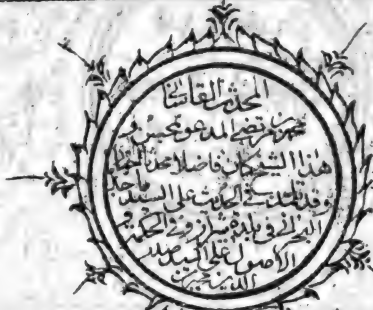 المحدث القاشاني
محمد بن مرتضى المدعو بمحسن و
هذا الشيخ كان فاضلا محدثا
وقد تلمذ في الحديث على السيد ماجد
البحراني في بلدة شيراز وفي الحكمة و
الاصول على السيد صدر
الدين